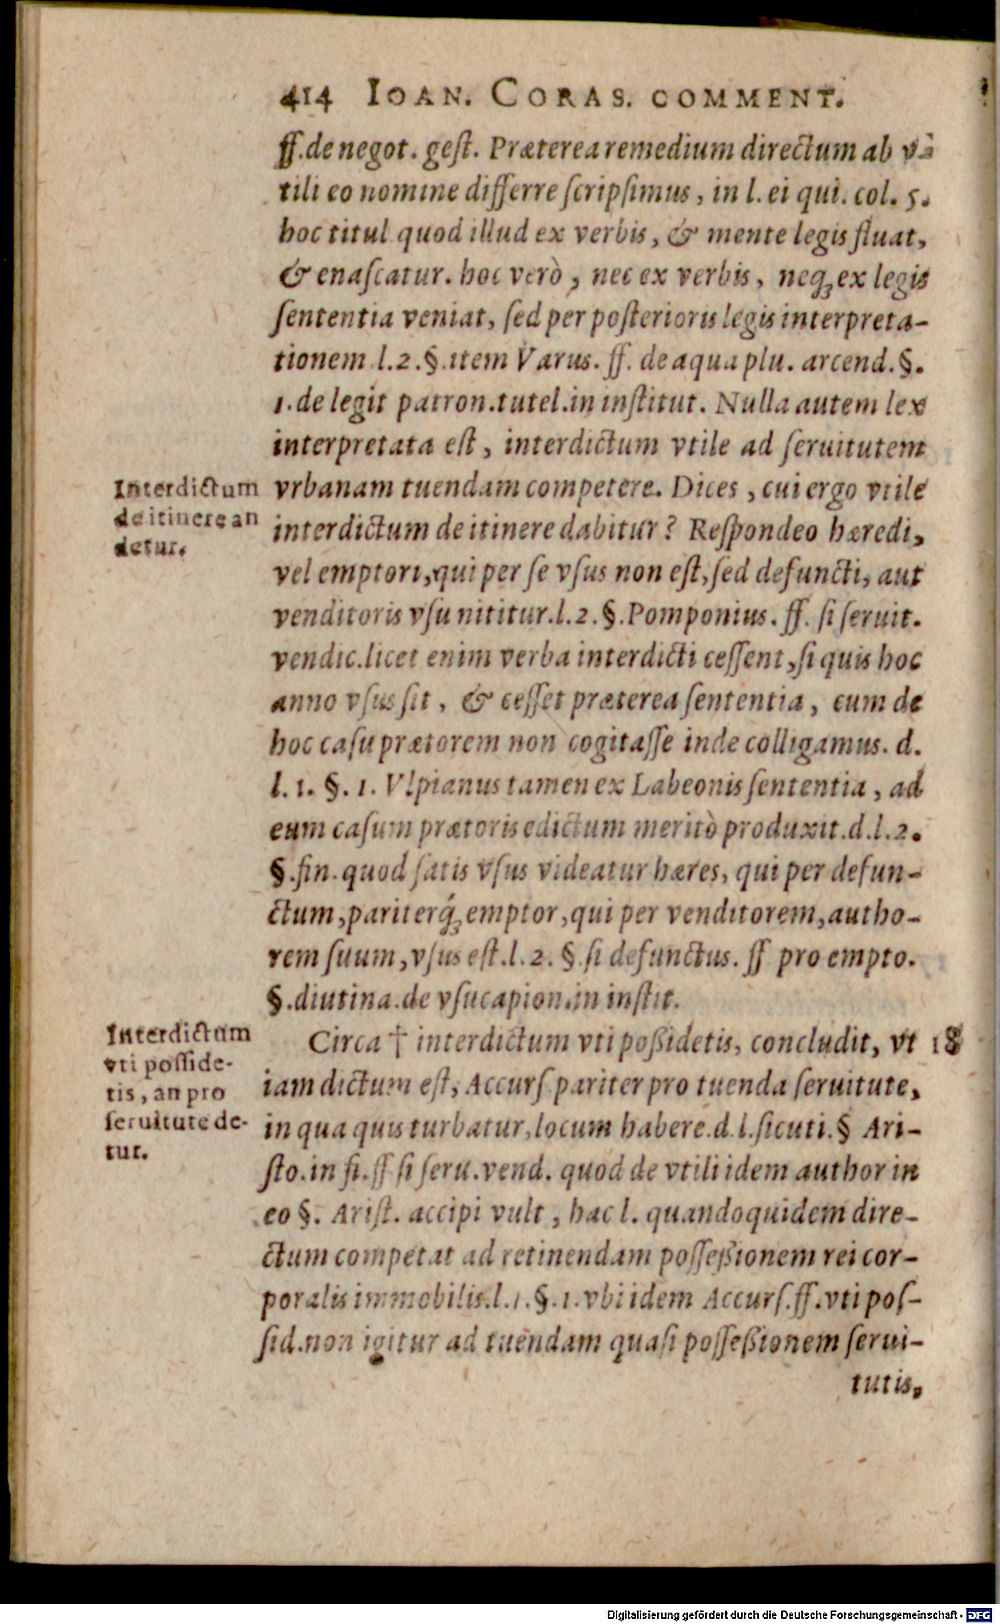 414 IOAN. CORAS. COMMENT.
ff. de negot. gest. Præterea remedium directum ab v-
tili eo nomine differre scripsimus, in l. ei qui. col. 5.
hoc titul. quod illud ex verbis, & mente legis fluat,
& enascatur. hoc verò, nec ex verbis, neq; ex legis
sententia veniat, sed per posterioris legis interpreta-
tionem l. 2. §. item Varus. ff. de aqua plu. arcend. §.
1. de legit patron. tutel. in institut. Nulla autem lex
interpretata est, interdictum vtile ad seruitutem
Interdictum de itinere an detur.
vrbanam tuendam competere. Dices, cui ergo vtile
interdictum de itinere dabitur? Respondeo hæredi,
vel emptori, qui per se vsus non est, sed defuncti, aut
venditoris vsu nititur. l. 2. §. Pomponius. ff. si seruit.
vendic. licet enim verba interdicti cessent, si quis hoc
anno vsus sit, & cesset præterea sententia, cum de
hoc casu prætorem non cogitasse inde colligamus. d.
l. 1. §. 1. Vlpianus tamen ex Labeonis sententia, ad
eum casum prætoris edictum meritò produxit. d. l. 2.
§. fin. quod satis vsus videatur hæres, qui per defun-
ctum, pariterq́; emptor, qui per venditorem, autho-
rem suum, vsus est. l. 2. §. si defunctus. ff pro empto.
§. diutina. de vsucapion. in instit.
Interdictum
vti posside-
tis, an pro
seruitute de-
tur.
Circa † interdictum vti poßidetis, concludit, vt 18
iam dictum est, Accurs. pariter pro tuenda seruitute,
in qua quis turbatur, locum habere. d. l. sicuti. § Ari-
sto. in fi. ff si seru. vend. quod de vtili idem author in
eo §. Arist. accipi vult, hac l. quandoquidem dire-
ctum competat ad retinendam posseßionem rei cor-
poralis immobilis. l. 1. §. 1. vbi idem Accurs. ff. vti pos-
sid. non igitur ad tuendam quasi posseßionem serui-
tutis,
Digitalisierung gefördert durch die Deutsche Forschungsgemeinschaft - DFG